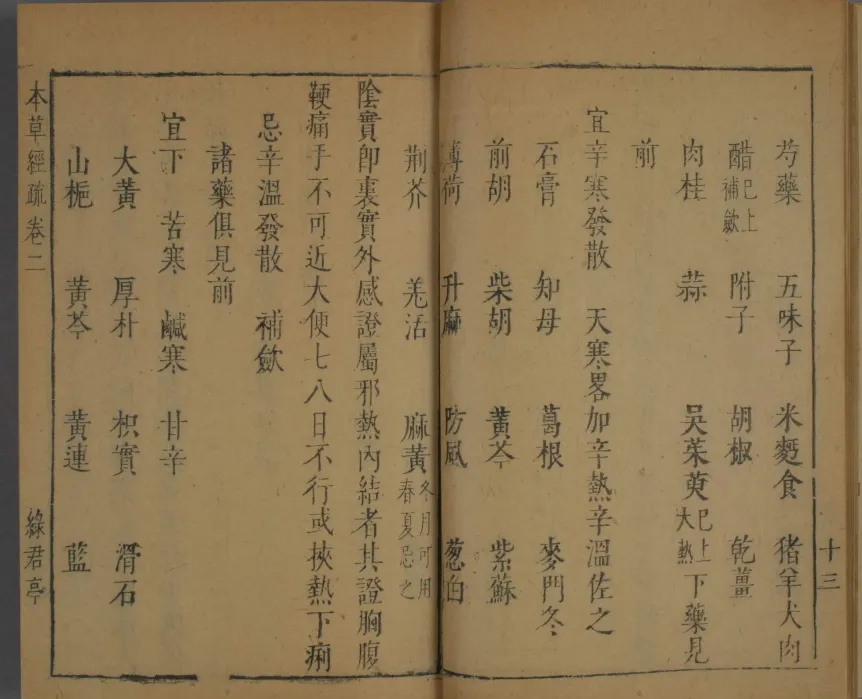 芍藥　五味子　米麪食　猪羊犬肉
醋巳上補歛　附子　胡椒　乾薑
肉桂　蒜　吳茱萸巳上大熱下藥見
前
宜辛寒發散　天寒畧加辛熱辛溫佐之
石膏　知母　葛根　麥門冬
前胡　柴胡　黃芩　紫蘇
薄荷　升麻　防風　葱白
十三
荊芥　羗活　麻黃冬月可用春夏忌之
陰實卽裏實外感證屬邪熱內結者其證胸腹
鞕痛手不可近大便七八日不行或挾熱下痢
忌辛溫發散　補歛
諸藥俱見前
宜下　苦寒　鹹寒　甘辛
大黃　厚朴　枳實　滑石
山梔　黃芩　黃連　藍
本草經疏卷二　綠君亭